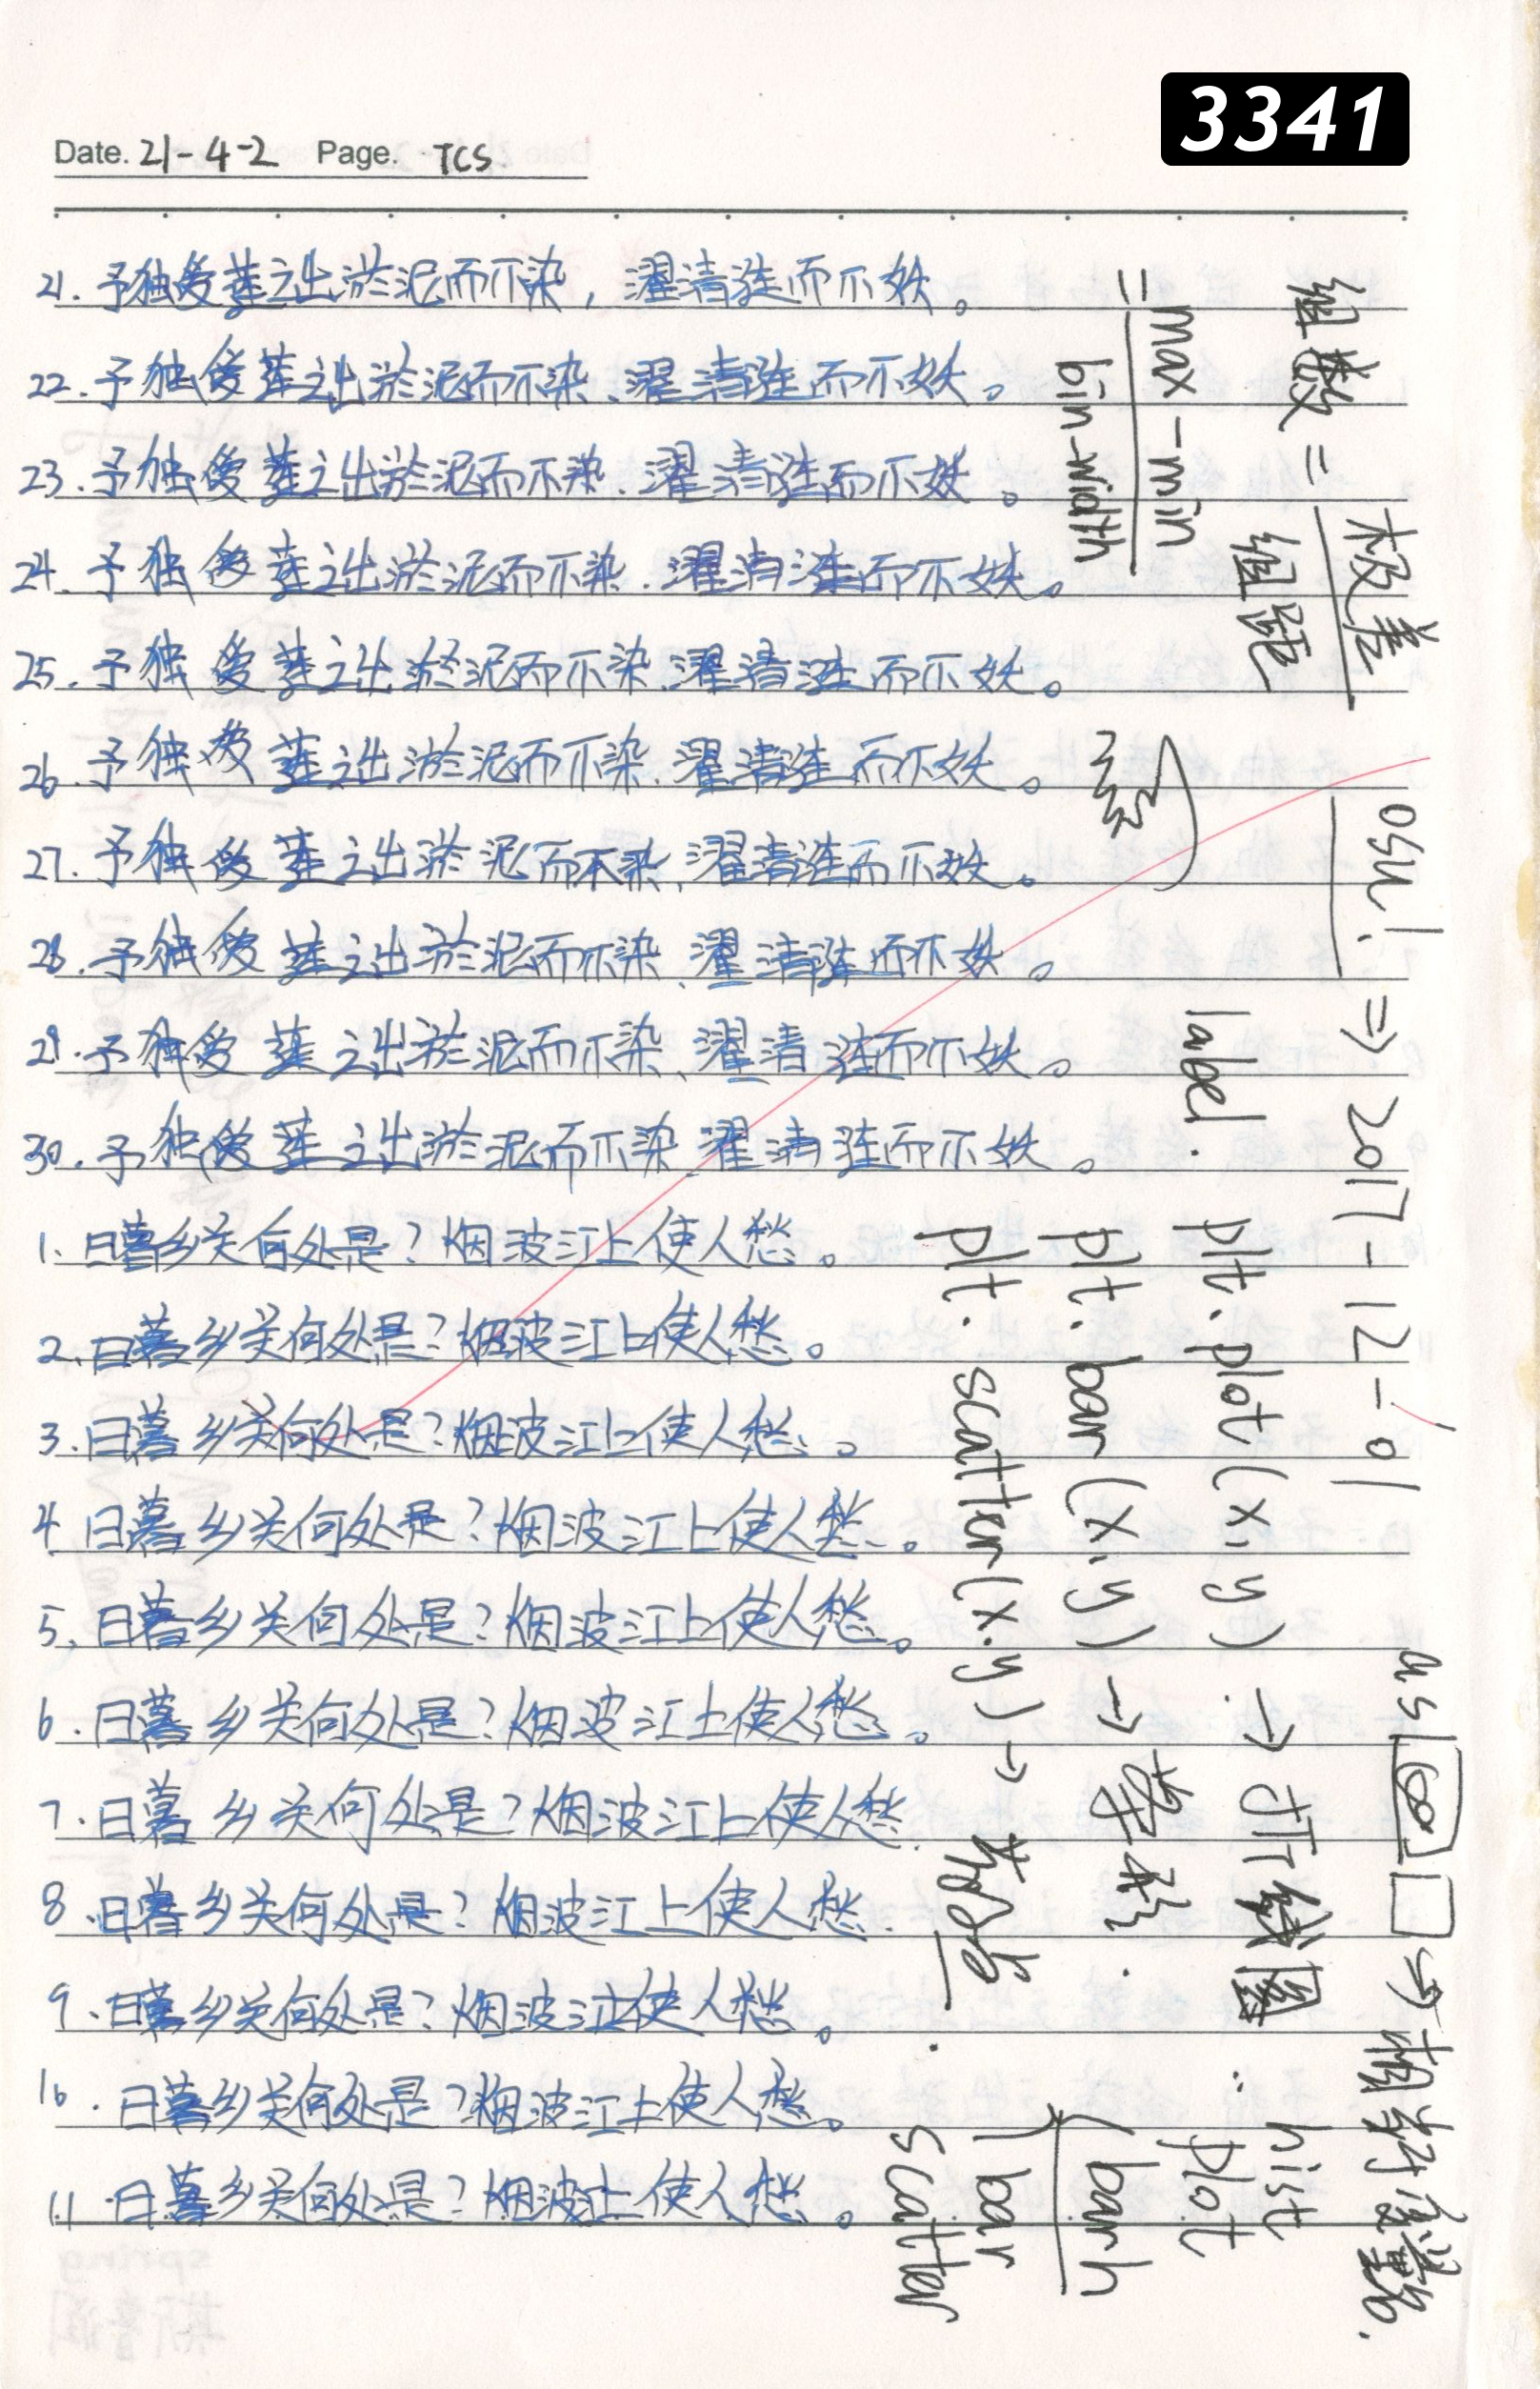 3341
Date. 21-4-2 Page. TCS
21.予独爱莲之出淤泥而不染，濯清涟而不妖。
22.予独爱莲之出淤泥而不染、濯清涟而不妖。
23.予独爱莲之出淤泥而不染.濯清涟而不妖。
24.予独爱莲之出淤泥而不染.濯清涟而不妖。
25.予独爱莲之出淤泥而不染.濯清涟而不妖。
26.予独爱莲之出淤泥而不染.濯清涟而不妖。
27.予独爱莲之出淤泥而不染、濯清涟而不妖。
28.予独爱莲之出淤泥而不染、濯清涟而不妖。
29.予独爱莲之出淤泥而不染、濯清涟而不妖。
30.予独爱莲之出淤泥而不染.濯清涟而不妖。
1.日暮乡关何处是?烟波江上使人愁。
2.日暮乡关何处是?烟波江上使人愁。
3.日暮乡关何处是?烟波江上使人愁。
4.日暮乡关何处是?烟波江上使人愁。
5.日暮乡关何处是?烟波江上使人愁。
6.日暮乡关何处是?烟波江上使人愁。
7.日暮乡关何处是?烟波江上使人愁.
8.日暮乡关何处是?烟波江上使人愁.
9.日暮乡关何处是?烟波江上使人愁。
10.日暮乡关何处是?烟波江上使人愁。
11.日暮乡关何处是?烟波江上使人愁。
组数=极差
组距
=max-min
bin-width
osu! ⇒ 2017-12-01
label.
plt.plot(x,y) → 折线图
plt.bar(x,y) →
plt.scatter(x.y) →
as
hist
plot
barh
bar
scatter